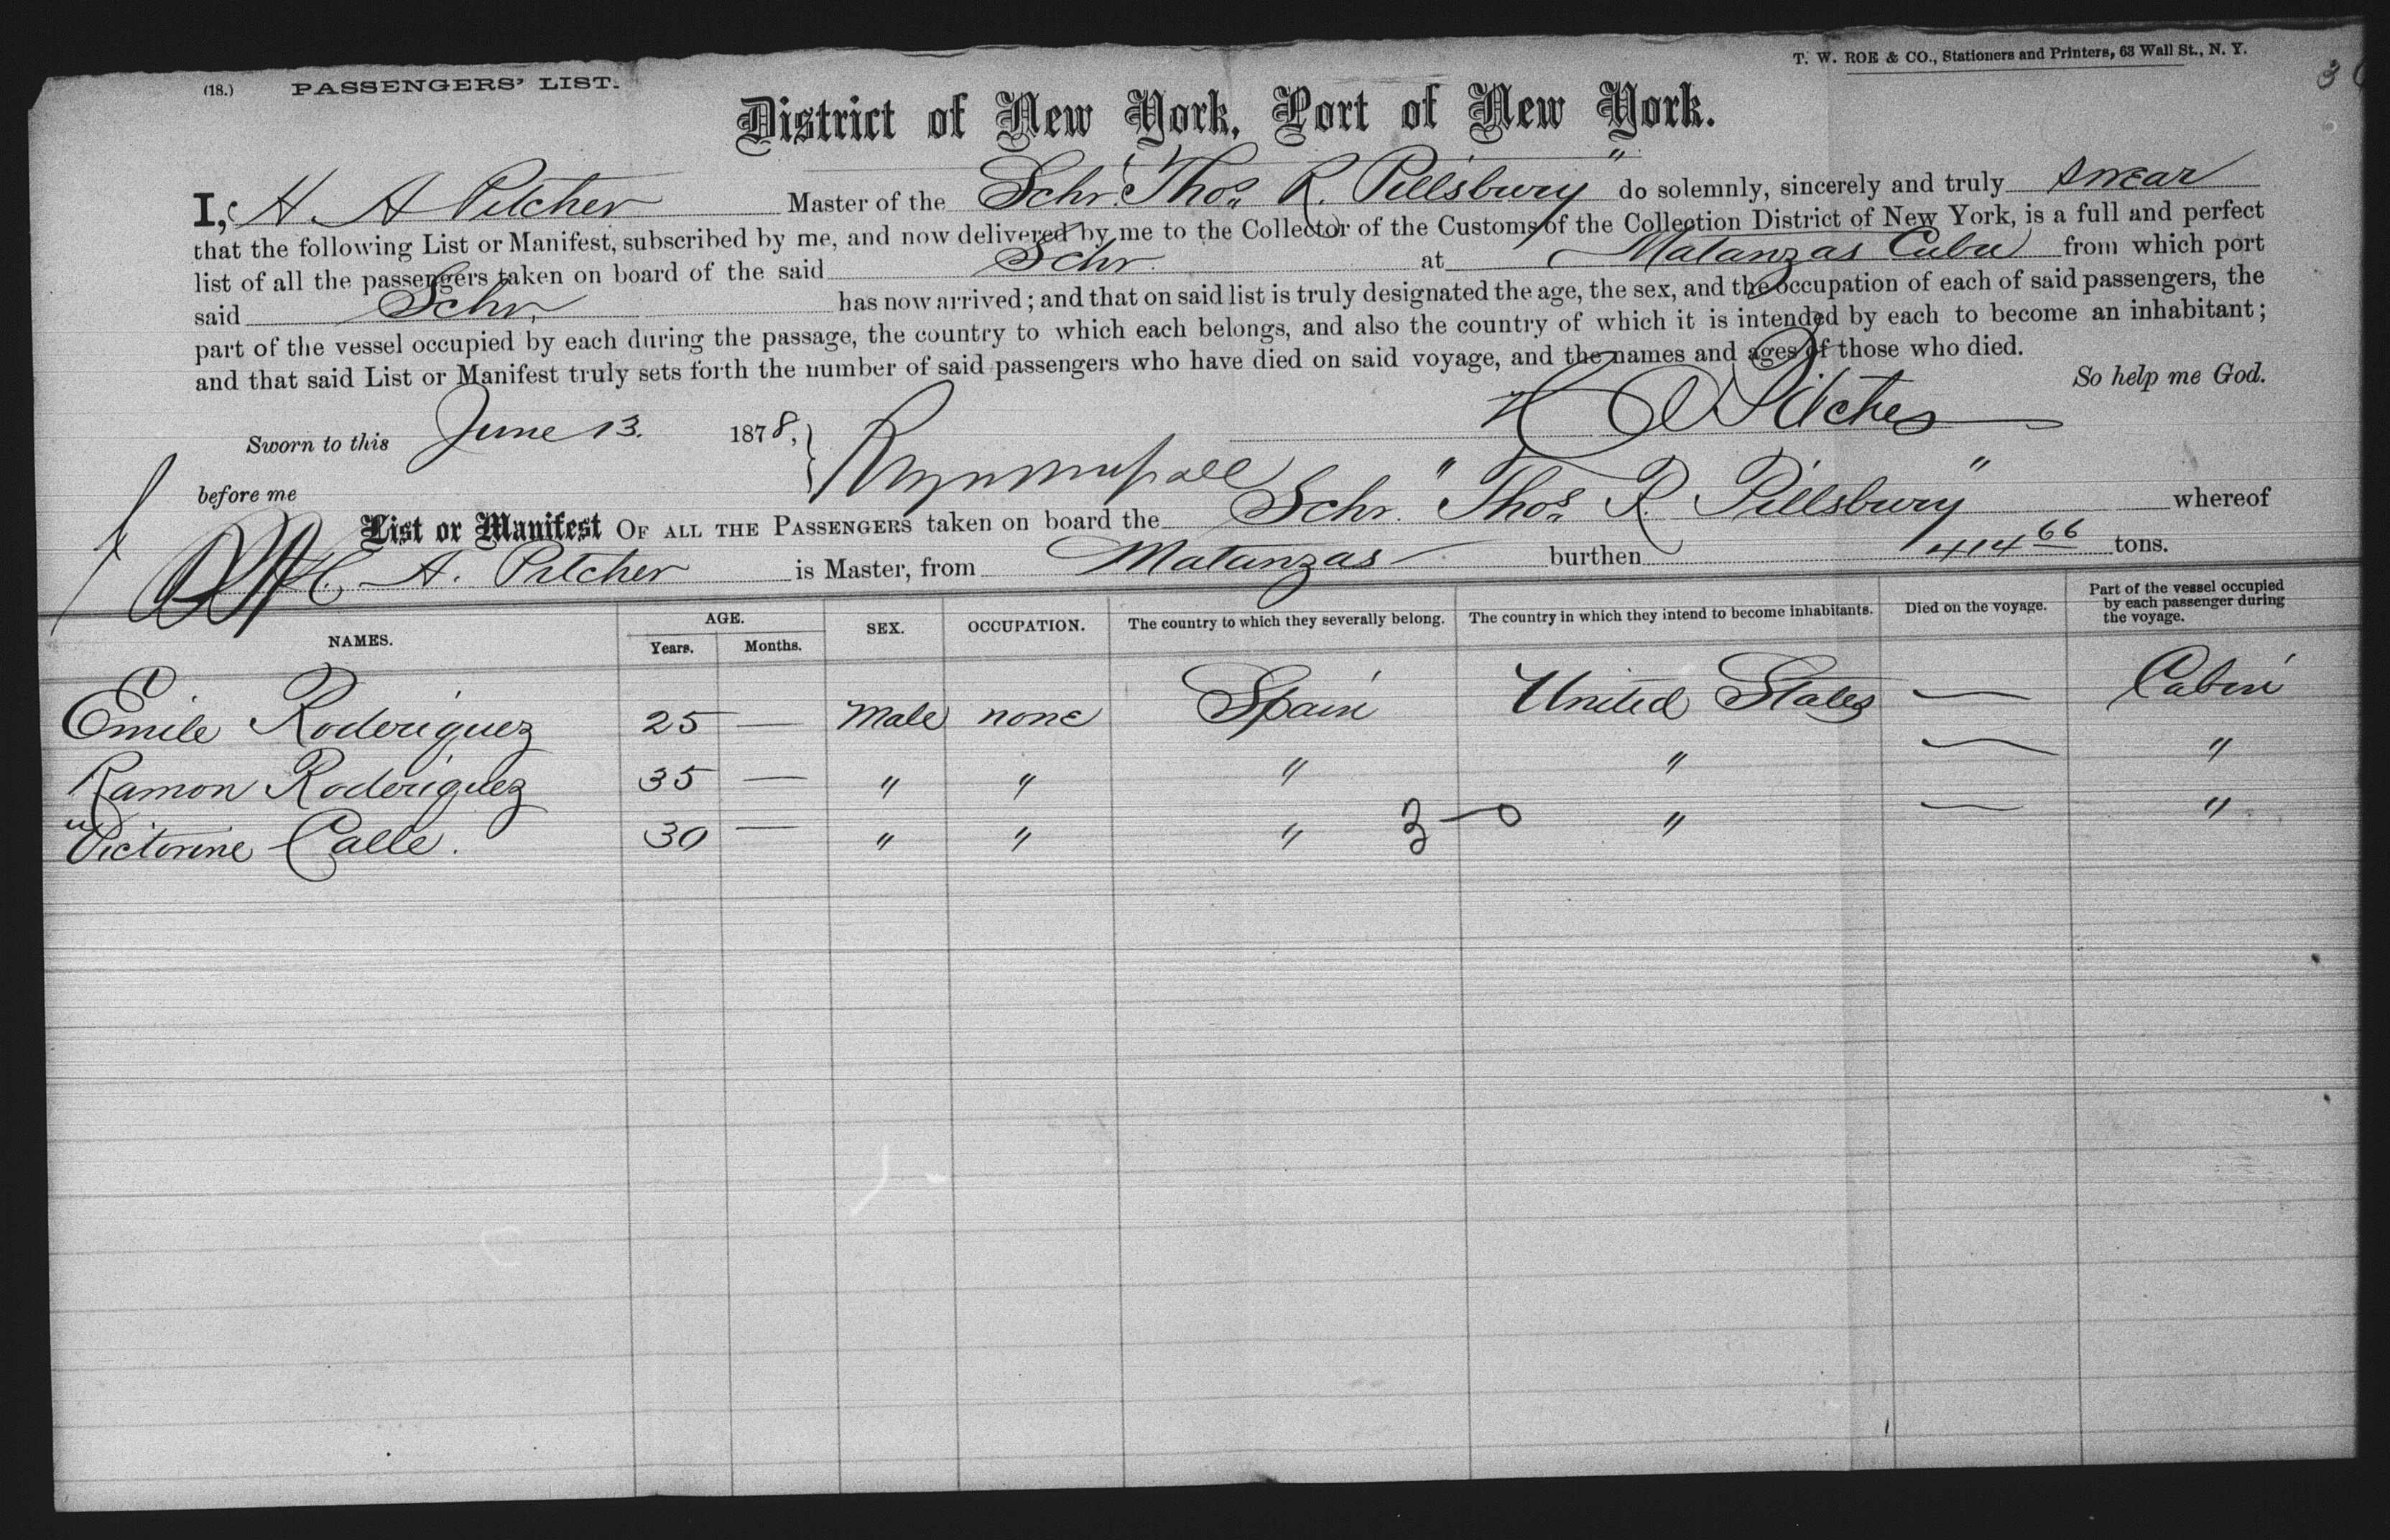 (18.) PASSENGERS' LIST.
T. W. ROE & CO., Stationers and Printers, 63 Wall St., N. Y.
3
District of New York, Port of New York.
I, H. A Pitcher Master of the Schr. "Thos. R. Pillsbury" do solemnly, sincerely and truly swear
that the following List or Manifest, subscribed by me, and now delivered by me to the Collector of the Customs of the Collection District of New York, is a full and perfect
list of all the passengers taken on board of the said Schr. at Matanzas Cuba from which port
said Schr. has now arrived; and that on said list is truly designated the age, the sex, and the occupation of each of said passengers, the
part of the vessel occupied by each during the passage, the country to which each belongs, and also the country of which it is intended by each to become an inhabitant;
and that said List or Manifest truly sets forth the number of said passengers who have died on said voyage, and the names and ages of those who died.
So help me God.
Sworn to this June 13. 1878, H A Pitcher
before me
List or Manifest OF ALL THE PASSENGERS taken on board the Schr. "Thos. R. Pillsbury" whereof
H. A. Pitcher is Master, from Matanzas burthen 414 66 tons.
NAMES. AGE. Years. Months. SEX. OCCUPATION. The country to which they severally belong. The country in which they intend to become inhabitants. Died on the voyage. Part of the vessel occupied by each passenger during the voyage.
Emile Roderiguez 25 — Male none Spain United States — Cabin
Ramon Roderiguez 35 — " " " " — "
Victorine Calle. 30 — " " " 3—0 " — "